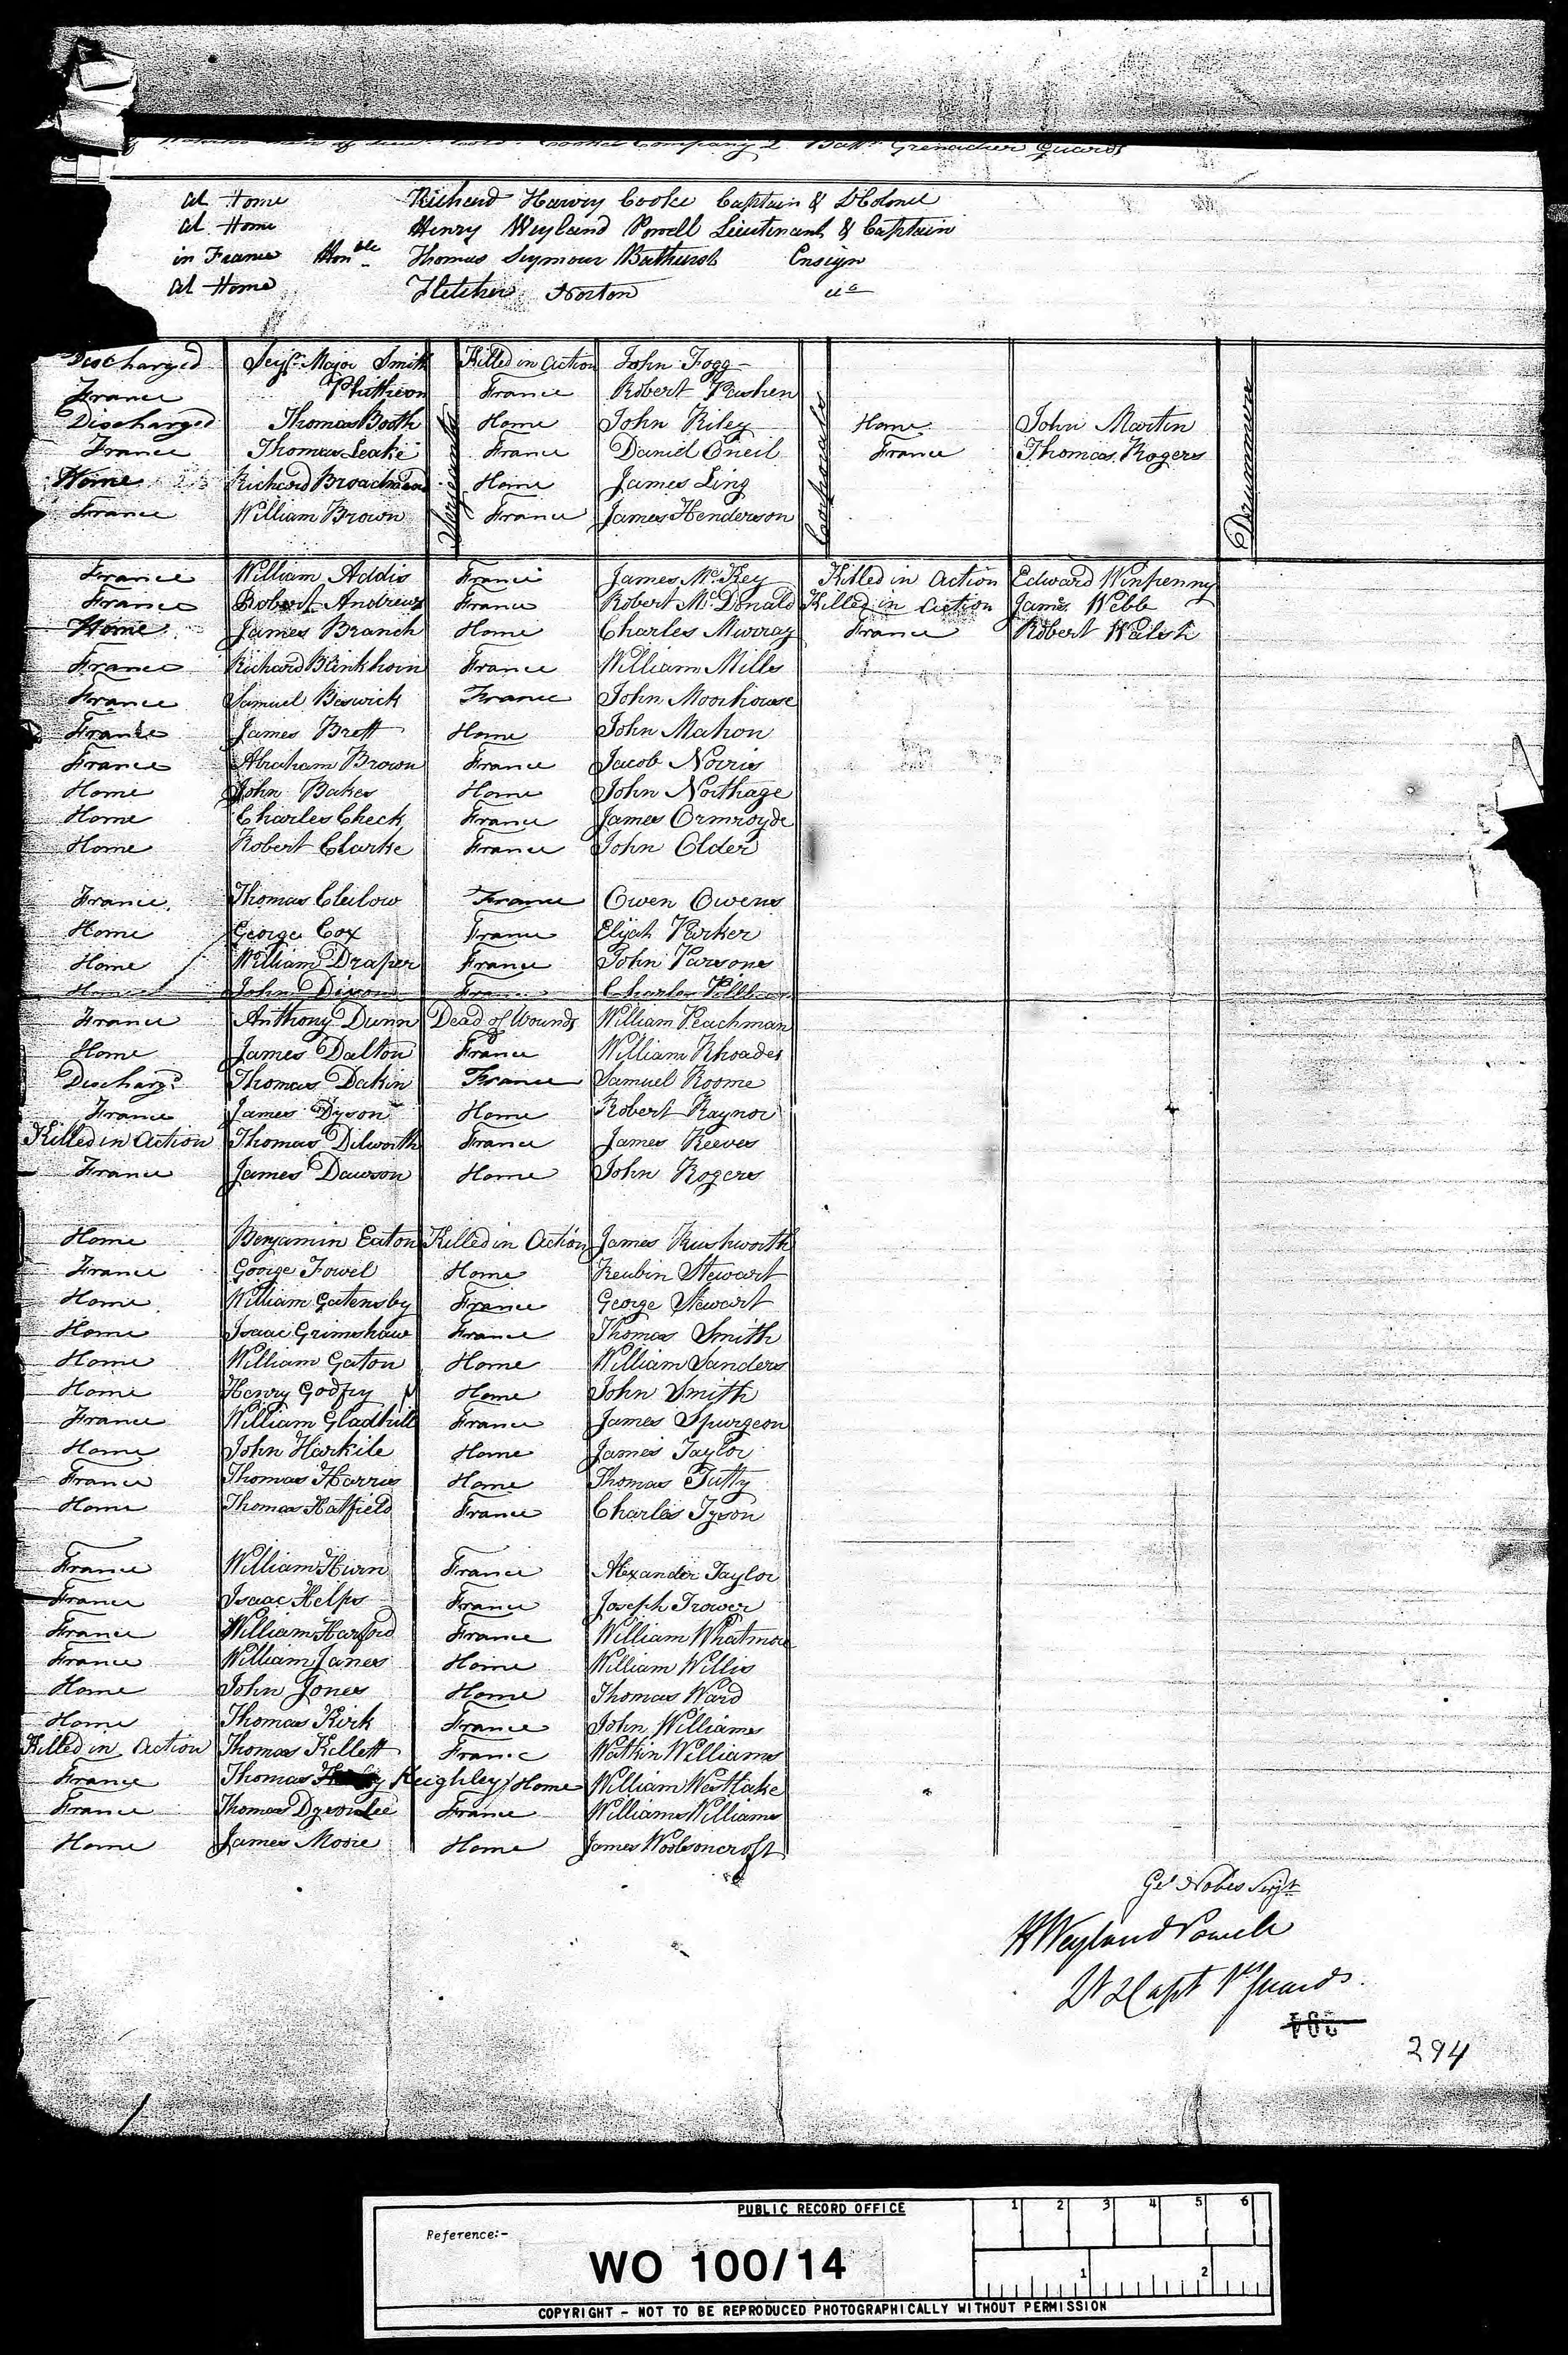 Company 2 Batt. Grenadier Guards
at Home Richard Harvey Cooke Captain & Lt Colonel
at Home Henry Weyland Powell Lieutenant & Captain
in France Honble Thomas Seymour Bathurst Ensign
at Home Fletcher Norton do
Discharged Serjt. Major Smith Killed in Action John Fogg
France France Robert
Discharged Thomas Booth Home John Riley Home John Martin
France Thomas Leake France Daniel Oneil France Thomas Rogers
Home Richard Home James Ling
France William Brown France James Henderson
Serjeants
Corporals
Drummers
France William Addis France James McKey Killed in Action Edward Winpenny
France Robert Andrews France Robert McDonald Killed in Action James Webb
Home James Branch Home Charles Murray France Robert Walsh
France Richard Blinkhorn France William Mills
France Samuel Beswick France John Moorhouse
France James Brett Home John Mahon
France Abraham Brown France Jacob Norris
Home John Baker Home John Northage
Home Charles Check France James Ormroyde
Home Robert Clarke France John Older
France Thomas Clulow France Owen Owens
Home George Cox France Elijah Parker
Home William Draper France John Parsons
Home John Dixon France Charles
France Anthony Dunn Dead of Wounds William Peachman
Home James Dalton France William Rhoades
Dischargd Thomas Dakin France Samuel Roome
France James Dyson Home Robert Raynor
Killed in Action Thomas Dilworth France James Reeves
France James Dawson Home John Rogers
Home Benjamin Eaton Killed in Action James Rushworth
France George Fowel Home Reubin Stewart
Home William Gatensby France George Stewart
Home Isaac Grimshaw France Thomas Smith
Home William Gaton Home William Sanders
Home Henry Godfry Home John Smith
France William Gladhill France James Spurgeon
Home John Harkile Home James Taylor
France Thomas Harris Home Thomas Tutty
Home Thomas Hatfield France Charles Tyson
France William Hurn France Alexander Taylor
France Isaac Helps France Joseph Trower
France William Harford France William Whatmore
France William Janes Home William Willis
Home John Jones Home Thomas Ward
Home Thomas Kirk France John Williams
Killed in Action Thomas Killett France Watkin Williams
France Thomas Keighley Home William Westlake
France Thomas Dyson Lee France William Williams
Home James Moore Home James Woolsoncroft
Geo Nobes Serjt
H Weyland Powell
Lt & Capt 1st Guards
294
PUBLIC RECORD OFFICE
1 2 3 4 5 6
Reference:-
WO 100/14
1 2
COPYRIGHT - NOT TO BE REPRODUCED PHOTOGRAPHICALLY WITHOUT PERMISSION